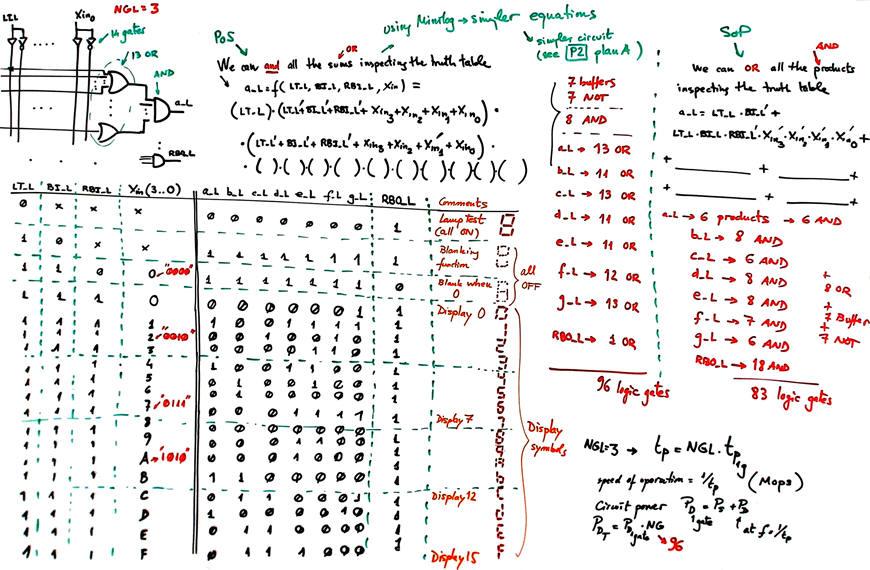 LT_L
Xin0
NGL=3
14 gates
13 OR
AND
a_L
RBO_L
PoS
Using Minilog → simpler equations
OR
We can and all the sums inspecting the truth table
a_L = f( LT_L, BI_L, RBI_L, Xin) =
(LT_L)·(LT_L'+BI_L'+RBI_L'+Xin3+Xin2+Xin1+Xin0)·
·(LT_L'+BI_L'+RBI_L'+Xin3+Xin2+Xin1'+Xin0)·
·( )·( )·( )·( )·( )·( )·( )·( )·( )·( )
simpler circuit
(see P2 plan A)
7 buffers
7 NOT
8 AND
a_L → 13 OR
b_L → 11 OR
c_L → 13 OR
d_L → 11 OR
e_L → 11 OR
f_L → 12 OR
g_L → 13 OR
RBO_L → 1 OR
96 logic gates
SoP
AND
We can OR all the products
inspecting the truth table
a_L = LT_L·BI_L'+
LT_L·BI_L·RBI_L'·Xin3'·Xin2'·Xin1'·Xin0'+
+ +
+ +
a_L → 6 products → 6 AND
b_L → 8 AND
c_L → 6 AND
d_L → 8 AND
e_L → 8 AND
f_L → 7 AND
g_L → 6 AND
RBO_L → 18 AND
+
8 OR
+
7 Buffer
+
7 NOT
83 logic gates
LT_L BI_L RBI_L Xin(3..0) a_L b_L c_L d_L e_L f_L g_L RBO_L Comments
0 x x x 0 0 0 0 0 0 0 1 Lamp Test
(all ON)
1 0 x x 1 1 1 1 1 1 1 1 Blanking
function
1 1 0 0 "0000" 1 1 1 1 1 1 1 0 Blank when
0
all
OFF
1 1 1 0 0 0 0 0 0 0 1 1 Display 0
1 1 1 1 1 0 0 1 1 1 1 1
1 1 1 2 "0010"
1 1 1 3
1 1 1 4
1 1 1 5
1 1 1 6
1 1 1 7 "0111" Display 7
1 1 1 8
1 1 1 9
1 1 1 A "1010"
1 1 1 B
1 1 1 C Display 12
1 1 1 D
1 1 1 E
1 1 1 F Display 15
Display
symbols
NGL=3 → tp = NGL·tp1g
speed of operation = 1/tp (Mops)
Circuit power PD 1gate = PS + PD
at f = 1/tp
PDT = PD 1gate · NG
96